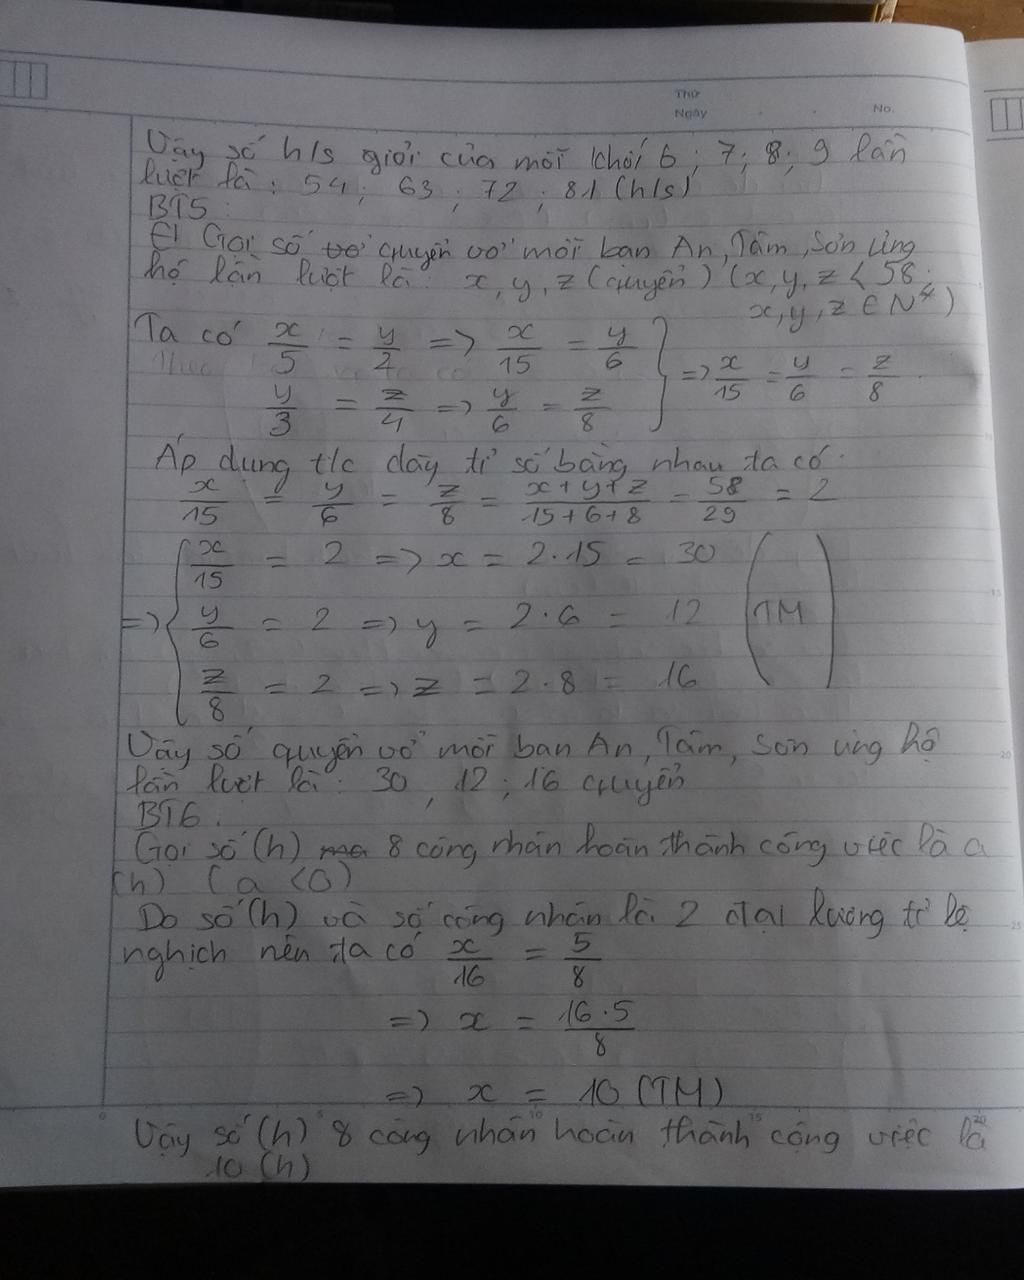 Thứ
Ngày No.
Vậy số h/s giỏi của mỗi khối 6 ; 7 ; 8 ; 9 lần
lượt là : 54 ; 63 ; 72 ; 81 (h/s)
BT5 :
Gọi số quyển vở mỗi bạn An, Tâm, Sơn ủng
hộ lần lượt là : x, y, z (quyển) (x, y, z < 58 ;
x, y, z ∈ N*)
Ta có x/5 = y/2 => x/15 = y/6
y/3 = z/4 => y/6 = z/8 } => x/15 = y/6 = z/8
Áp dụng t/c dãy tỉ số bằng nhau ta có :
x/15 = y/6 = z/8 = x+y+z/15+6+8 = 58/29 = 2
=> { x/15 = 2 => x = 2.15 = 30
y/6 = 2 => y = 2.6 = 12 (TM)
z/8 = 2 => z = 2.8 = 16
Vậy số quyển vở mỗi bạn An, Tâm, Sơn ủng hộ
lần lượt là : 30 , 12 ; 16 quyển
BT6 .
Gọi số (h) 8 công nhân hoàn thành công việc là a
(h) (a < 0)
Do số (h) và số công nhân là 2 đại lượng tỉ lệ
nghịch nên ta có x/16 = 5/8
=> x = 16.5/8
=> x = 10 (TM)
Vậy số (h) 8 công nhân hoàn thành công việc là
10 (h)